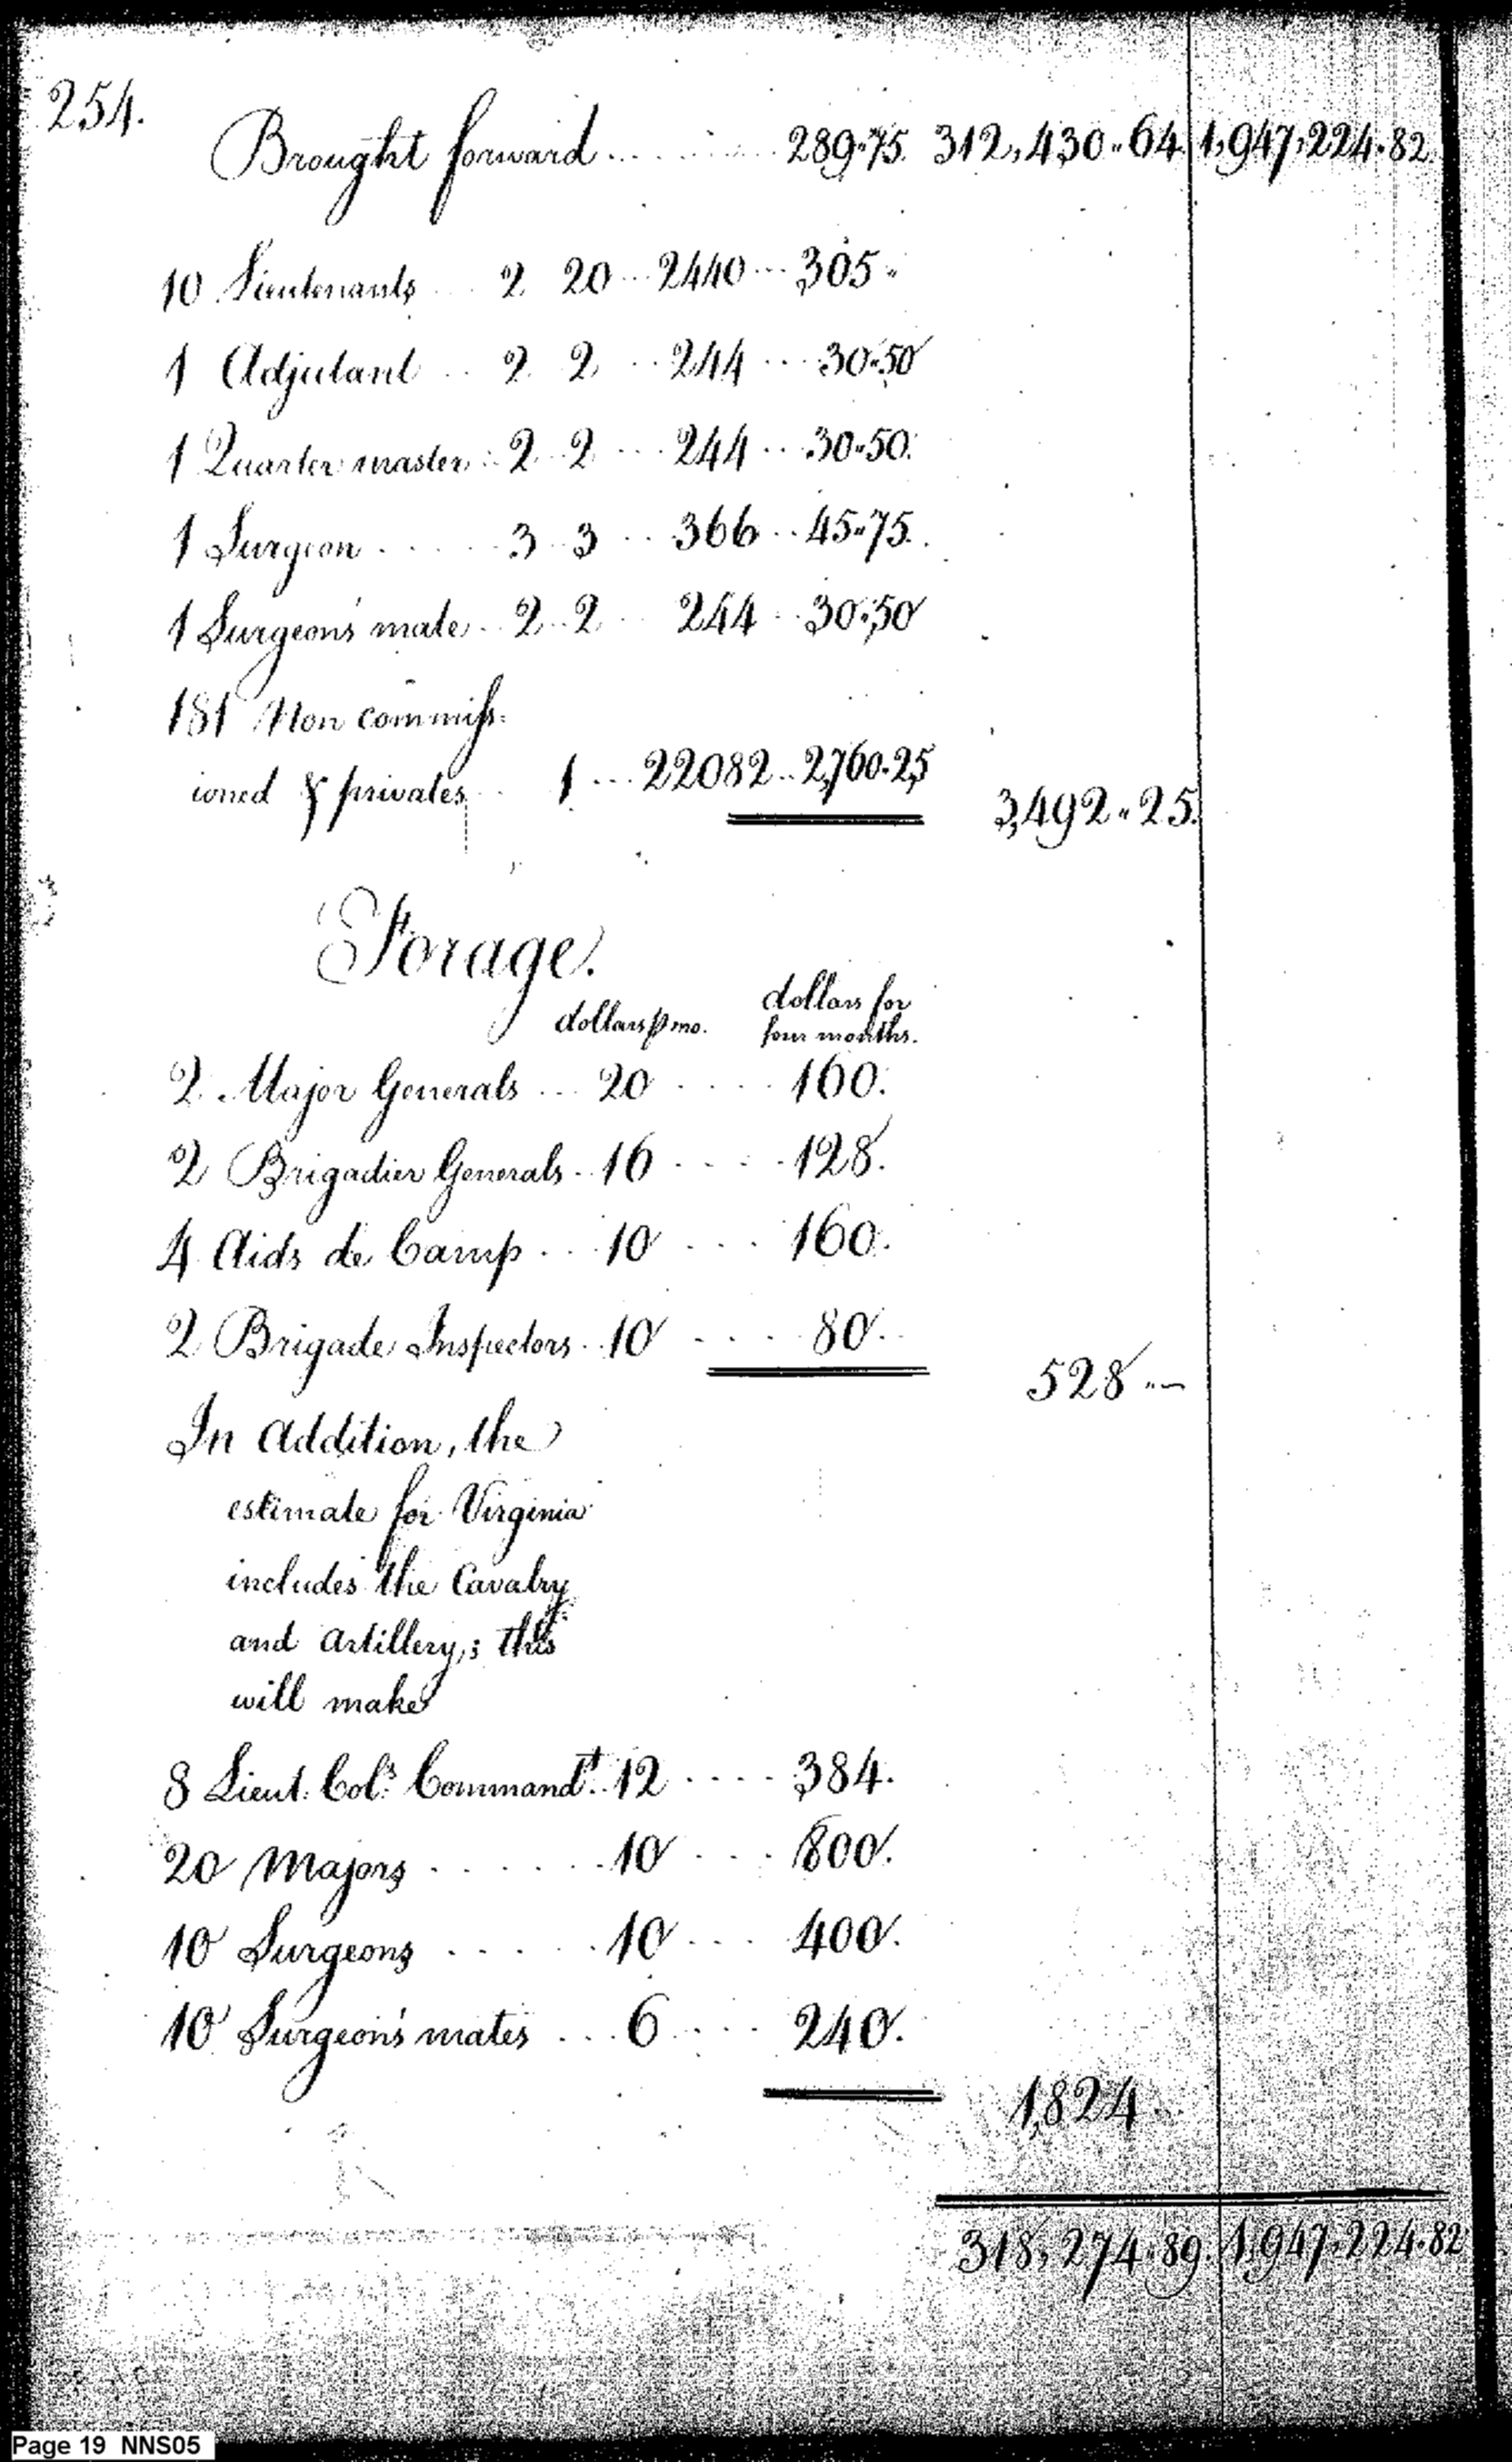 254.
Brought forward .......... 289"75. 312,430"64. 1,947,224.82.
10 Lieutenants .... 2 20 ... 2440 ... 305"
1 Adjutant .. 2 2 ... 244 ... 30"50
1 Quarter master .. 2 2 ... 244 .. 30"50.
1 Surgeon ..... 3 3 .. 366 .. 45"75.
1 Surgeon's mate .. 2 .. 2 ... 244 .. 30"50
181 Non commiss=
ioned & privates .. 1 ... 22082 .. 2,760.25
3,492"25.
Forage.
dollars p mo. dollars for
four months.
2 Major Generals ... 20 .... 160.
2 Brigadier Generals .. 16 .... 128.
4 Aids de Camp ... 10 ... 160.
2 Brigade Inspectors .. 10 .... 80.
528"—
In addition, the
estimate for Virginia
includes the Cavalry
and artillery,; this
will make
8 Lieut. Cols. Commandt. .. 12 .... 384.
20 Majors ...... 10 ... 800.
10 Surgeons ..... 10 ... 400.
10 Surgeon's mates ... 6 .... 240.
1,824..
318,274.89. 1,947,224.82
Page 19 NNS05